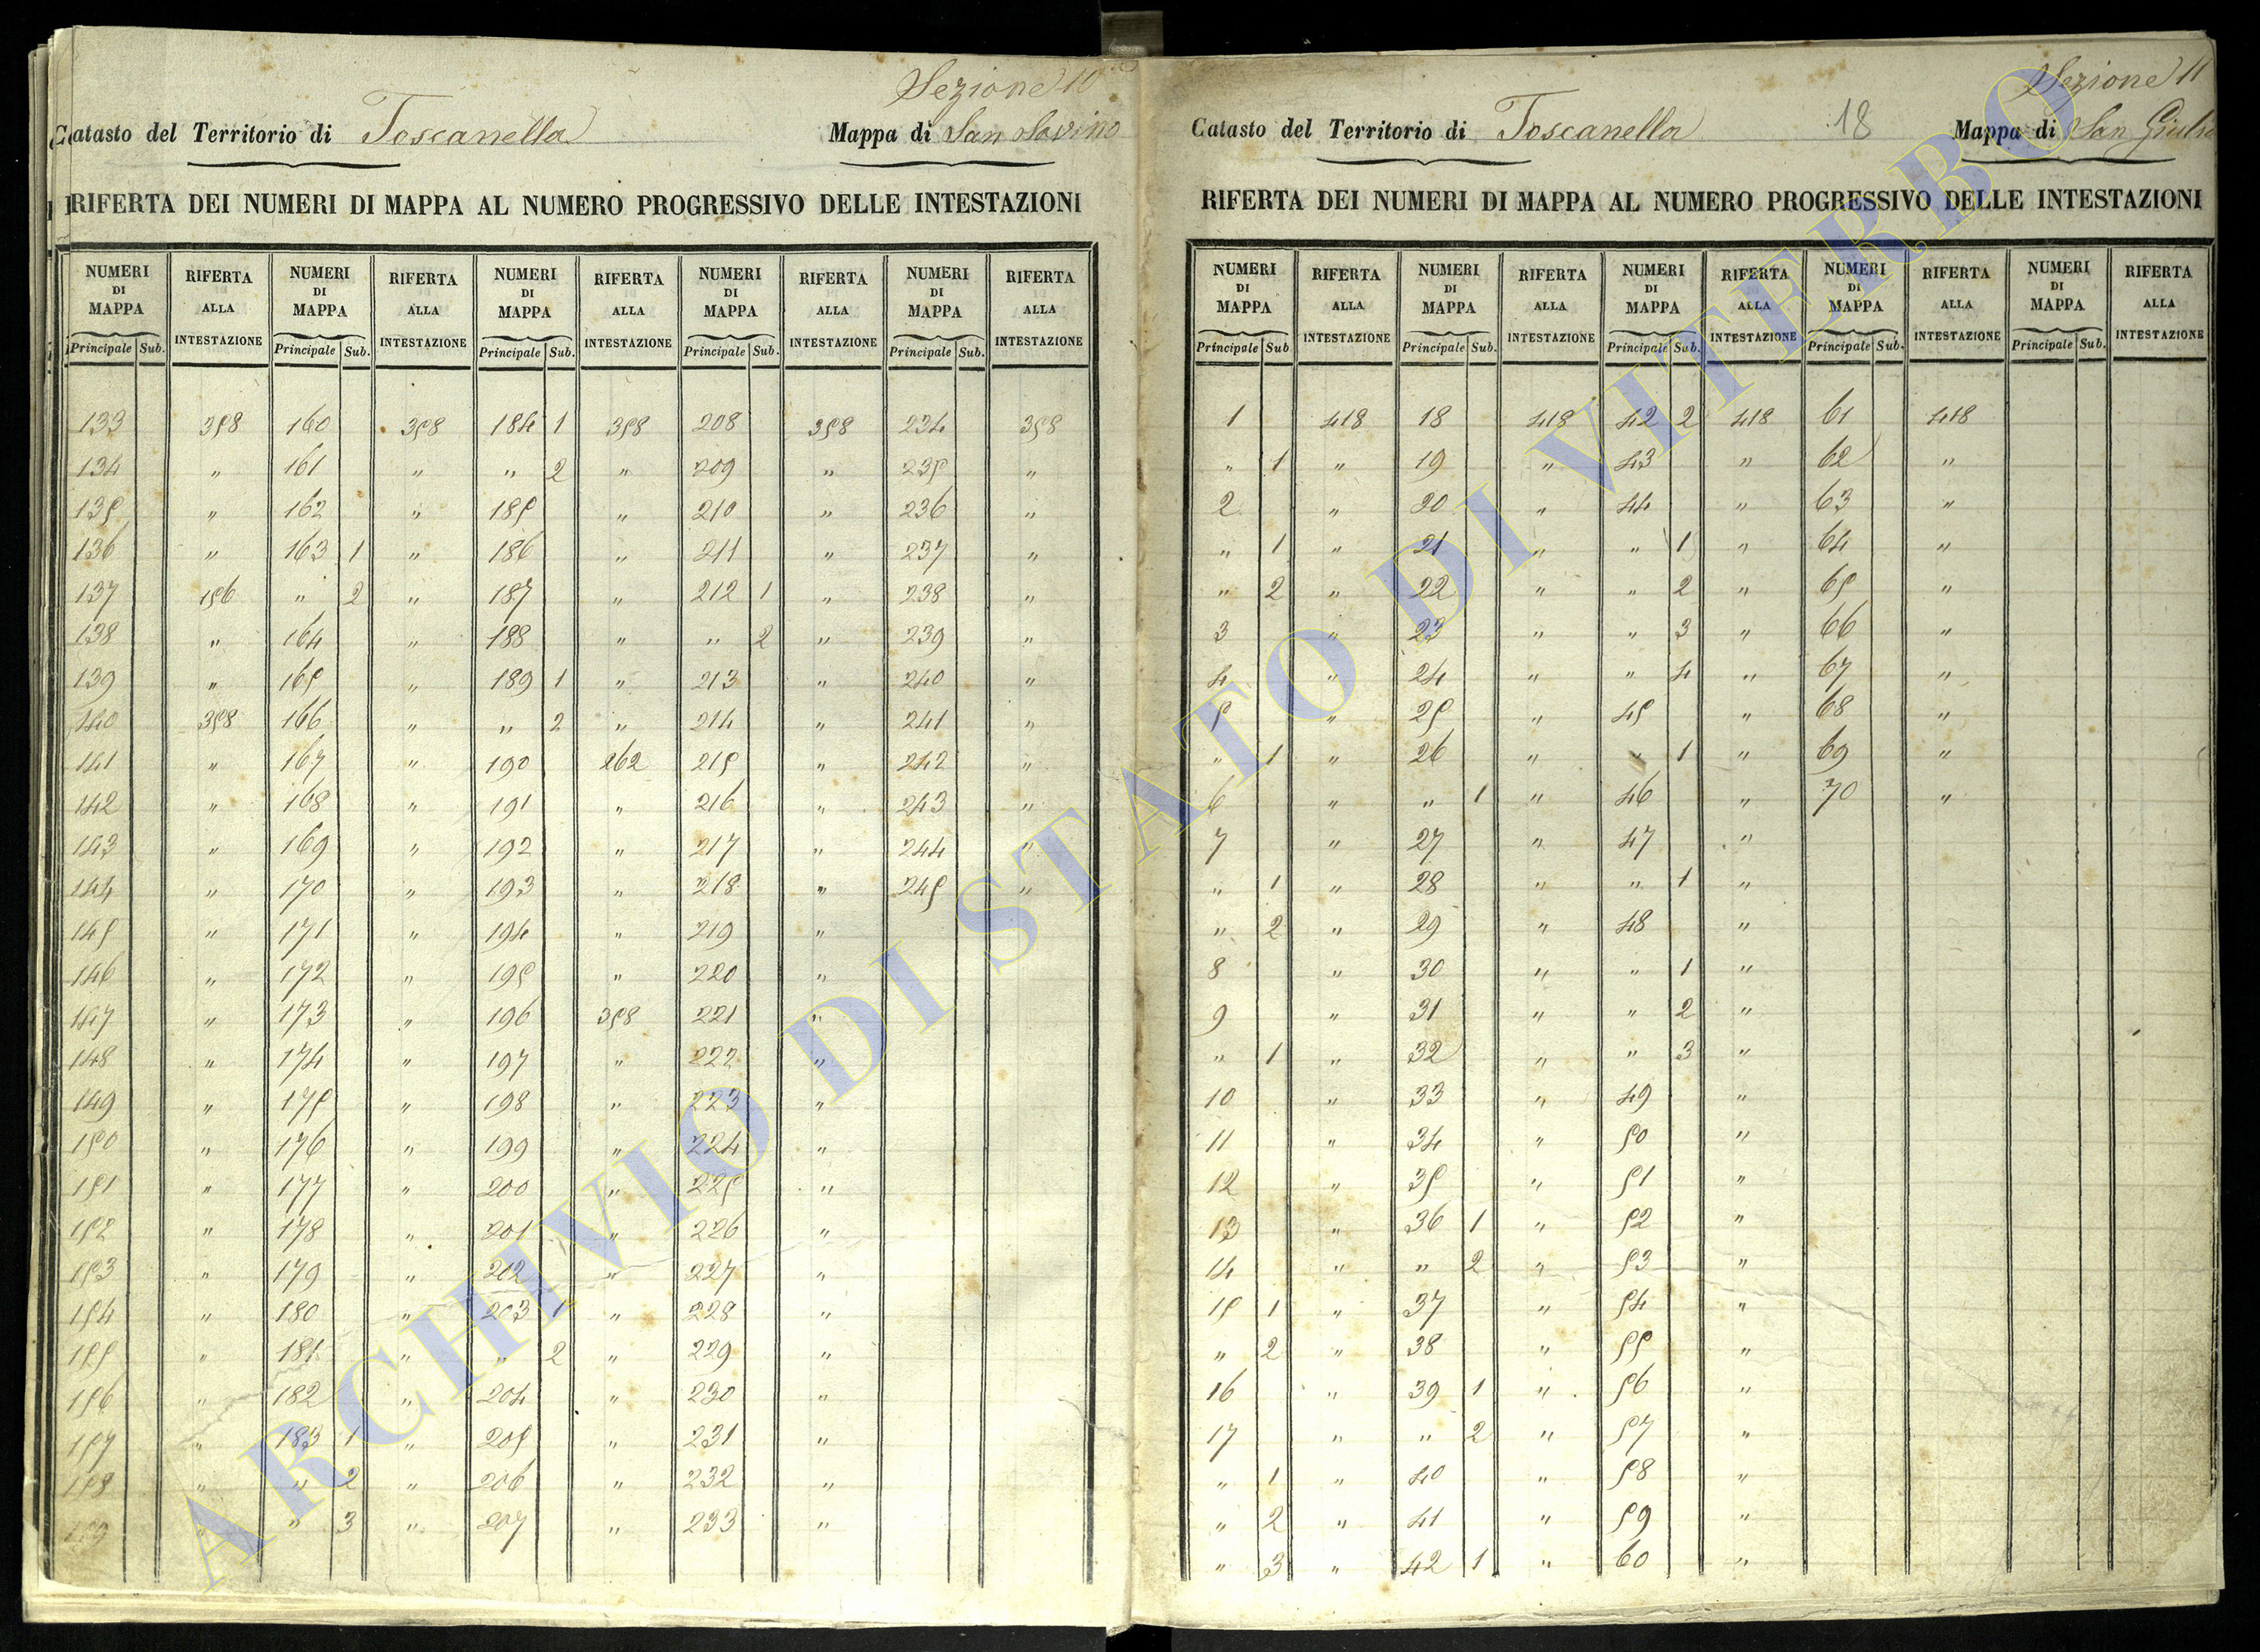 Sezione 10
Catasto del Territorio di Toscanella Mappa di San Savino
RIFERTA DEI NUMERI DI MAPPA AL NUMERO PROGRESSIVO DELLE INTESTAZIONI
NUMERI DI MAPPA RIFERTA ALLA INTESTAZIONE NUMERI DI MAPPA RIFERTA ALLA INTESTAZIONE NUMERI DI MAPPA RIFERTA ALLA INTESTAZIONE NUMERI DI MAPPA RIFERTA ALLA INTESTAZIONE NUMERI DI MAPPA RIFERTA ALLA INTESTAZIONE
Principale Sub. Principale Sub. Principale Sub. Principale Sub. Principale Sub.
133 358 160 358 184 1 358 208 358 234 358
134 " 161 " " 2 " 209 " 235 "
135 " 162 " 185 " 210 " 236 "
136 " 163 1 " 186 " 211 " 237 "
137 156 " 2 " 187 " 212 1 " 238 "
138 " 164 " 188 " " 2 " 239 "
139 " 165 " 189 1 " 213 " 240 "
140 358 166 " " 2 " 214 " 241 "
141 " 167 " 190 262 215 " 242 "
142 " 168 " 191 " 216 " 243 "
143 " 169 " 192 " 217 " 244 "
144 " 170 " 193 " 218 " 245 "
145 " 171 " 194 " 219 "
146 " 172 " 195 " 220 "
147 " 173 " 196 358 221 "
148 " 174 " 197 " 222 "
149 " 175 " 198 " 223 "
150 " 176 " 199 " 224 "
151 " 177 " 200 " 225 "
152 " 178 " 201 " 226 "
153 " 179 " 202 " 227 "
154 " 180 " 203 1 " 228 "
155 " 181 " " 2 " 229 "
156 " 182 " 204 " 230 "
157 " 183 1 " 205 " 231 "
158 " " 2 " 206 " 232 "
159 " " 3 " 207 " 233 "
Sezione 11
Catasto del Territorio di Toscanella 18 Mappa di San Giulio
RIFERTA DEI NUMERI DI MAPPA AL NUMERO PROGRESSIVO DELLE INTESTAZIONI
NUMERI DI MAPPA RIFERTA ALLA INTESTAZIONE NUMERI DI MAPPA RIFERTA ALLA INTESTAZIONE NUMERI DI MAPPA RIFERTA ALLA INTESTAZIONE NUMERI DI MAPPA RIFERTA ALLA INTESTAZIONE NUMERI DI MAPPA RIFERTA ALLA INTESTAZIONE
Principale Sub Principale Sub. Principale Sub. Principale Sub. Principale Sub.
1 418 18 418 42 2 418 61 418
" 1 " 19 " 43 " 62 "
2 " 20 " 44 " 63 "
" 1 " 21 " " 1 " 64 "
" 2 " 22 " " 2 " 65 "
3 " 23 " " 3 " 66 "
4 " 24 " " 4 " 67 "
5 " 25 " 45 " 68 "
" 1 " 26 " " 1 " 69 "
6 " " 1 " 46 " 70 "
7 " 27 " 47 "
" 1 " 28 " " 1 "
" 2 " 29 " 48 "
8 " 30 " " 1 "
9 " 31 " " 2 "
" 1 " 32 " " 3 "
10 " 33 " 49 "
11 " 34 " 50 "
12 " 35 " 51 "
13 " 36 1 " 52 "
14 " " 2 " 53 "
15 1 " 37 " 54 "
" 2 " 38 " 55 "
16 " 39 1 " 56 "
17 " " 2 " 57 "
" 1 " 40 " 58 "
" 2 " 41 " 59 "
" 3 " 42 1 " 60 "
ARCHIVIO DI STATO DI VITERBO